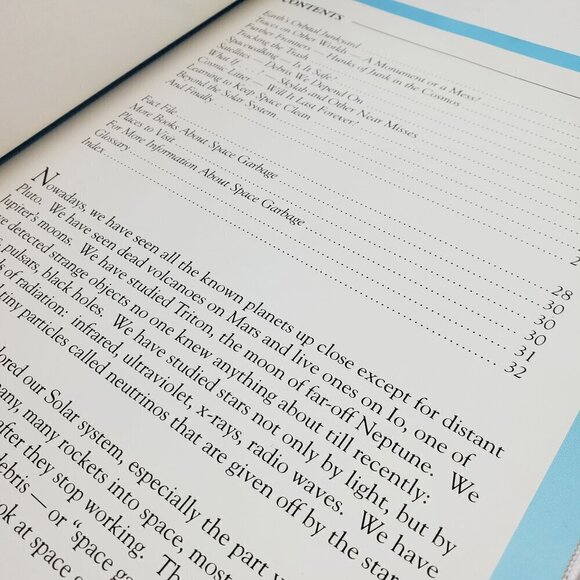 CONTENTS
Earth's Orbital Junkyard
Traces on Other Worlds — A Monument or a Mess?
Further Frontiers — Hunks of Junk in the Cosmos
Tracking the Trash
Spacewalking — Is It Safe?
Satellites — Debris We Depend On
What If . . . ? — Skylab and Other Near Misses
Cosmic Litter — Will It Last Forever?
Learning to Keep Space Clean
Beyond the Solar System
And Finally
Fact File 28
More Books About Space Garbage 30
Places to Visit 30
For More Information About Space Garbage 30
Glossary 31
Index 32
Nowadays, we have seen all the known planets up close except for distant
Pluto. We have seen dead volcanoes on Mars and live ones on Io, one of
Jupiter's moons. We have studied Triton, the moon of far-off Neptune. We
detected strange objects no one knew anything about till recently:
pulsars, black holes. We have studied stars not only by light, but by
of radiation: infrared, ultraviolet, x-rays, radio waves. We have
tiny particles called neutrinos that are given off by the stars
our Solar system, especially the part
many rockets into space, most
after they stop working.
debris — or "space
at space